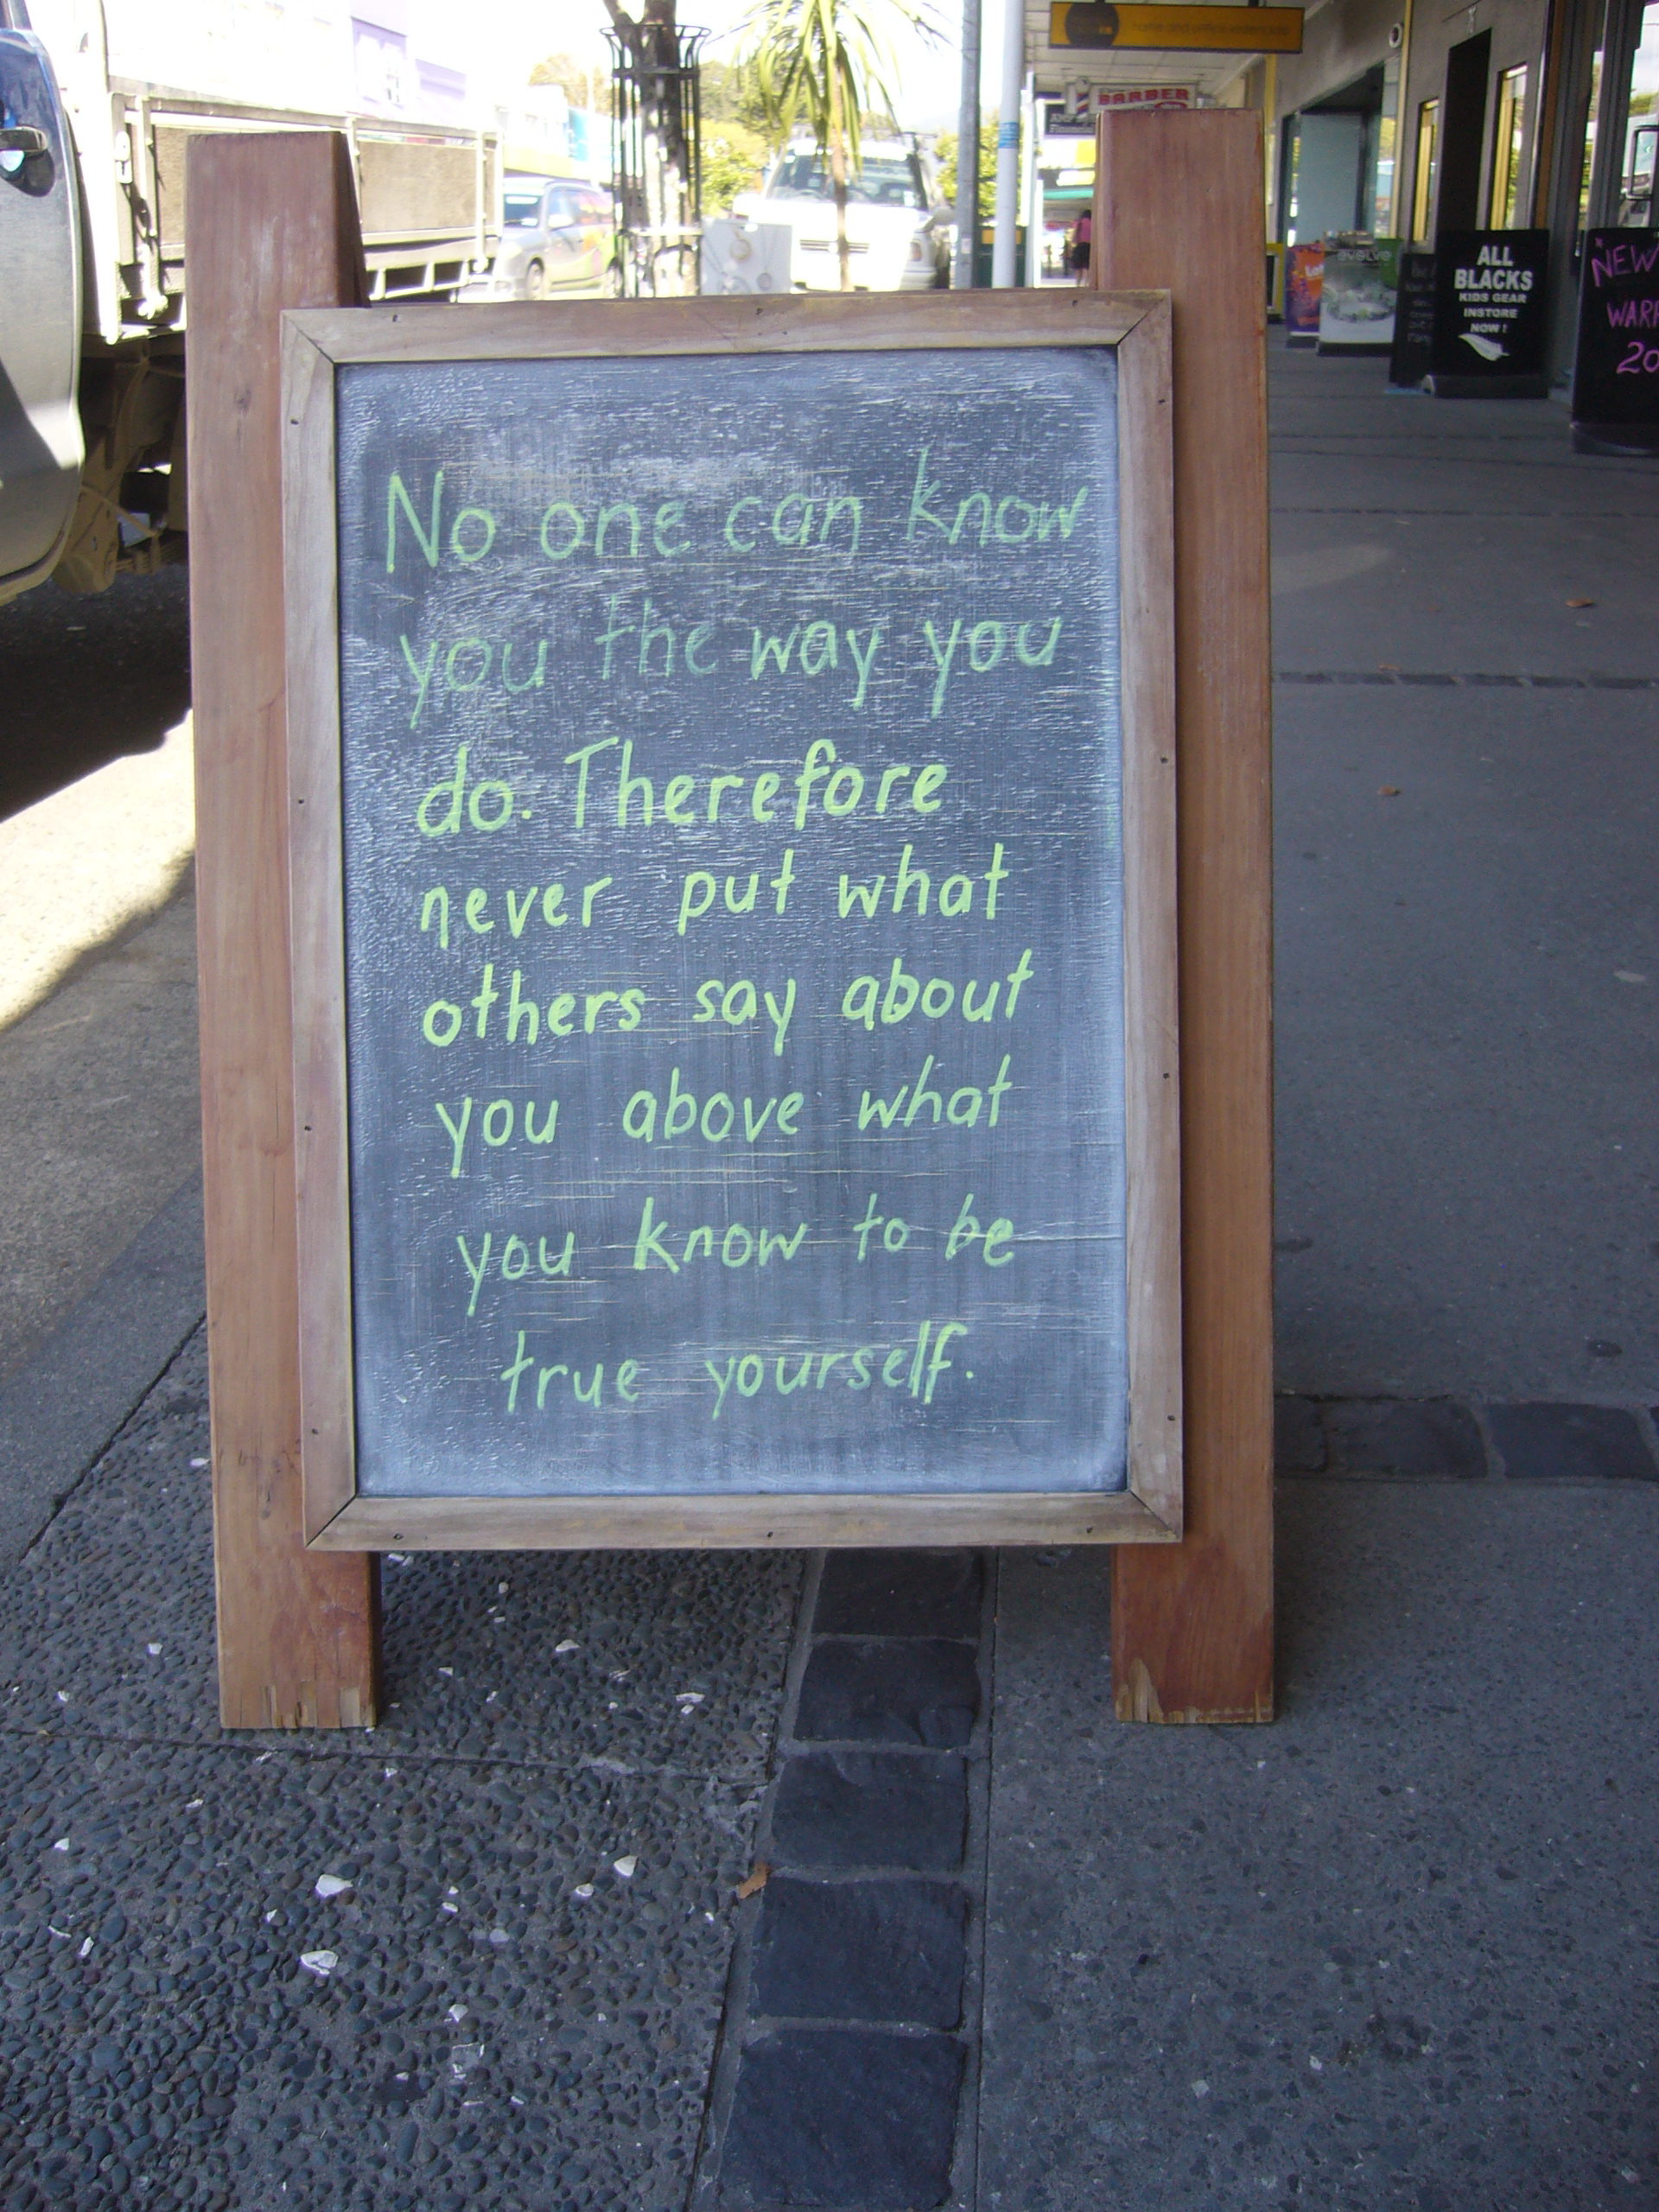 BARBER
ALL
BLACKS
KIDS GEAR
INSTORE
NOW!
NEW
No one can know
you the way you
do. Therefore
never put what
others say about
you above what
you know to be
true yourself.